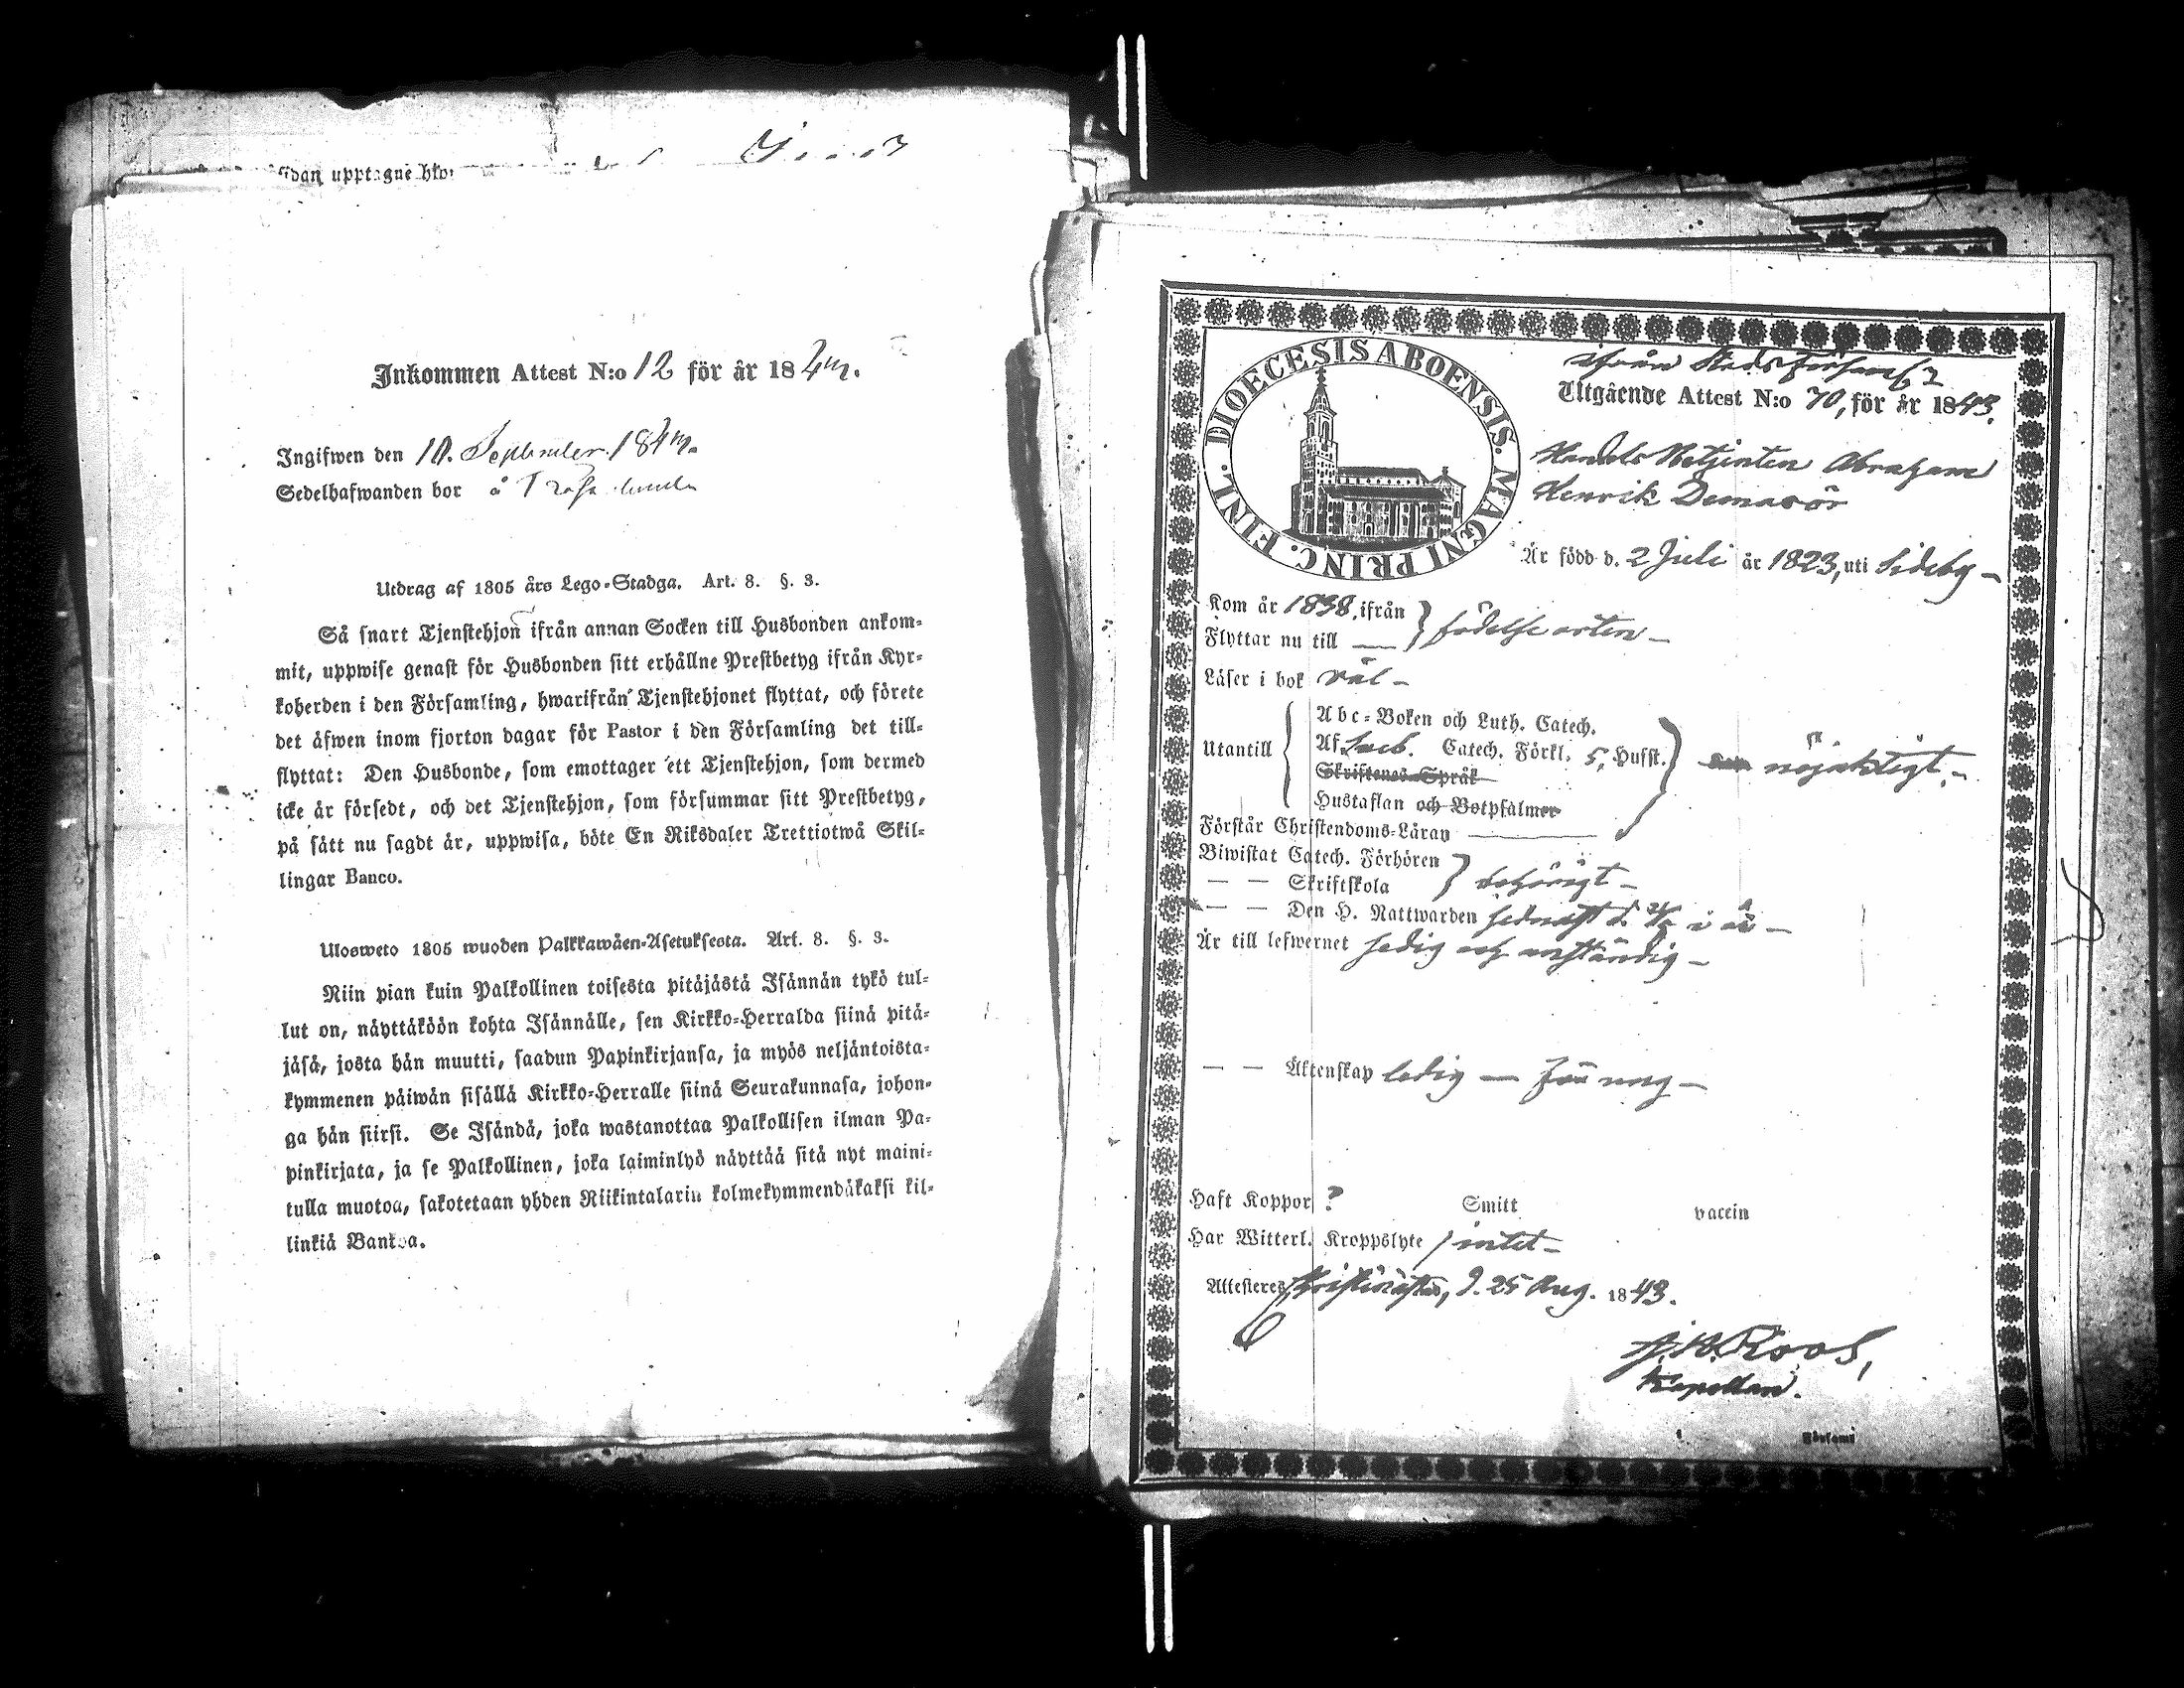 sidan upptagne
Inkommen Attest N:o 12 för år 184
Ingifwen den 10. September 184
Sedelhafwanden bor å
Utdrag af 1805 års Lego-Stadga. Art. 8. §. 3.
Så snart Tjenstehjon ifrån annan Socken till Husbonden ankom-
mit, uppwise genast för Husbonden sitt erhållne Prestbetyg ifrån Kyr-
koherden i den Församling, hwarifrån Tjenstehjonet flyttat, och förete
det äfwen inom fjorton dagar för Pastor i den Församling det till-
flyttat: Den Husbonde, som emottager ett Tjenstehjon, som dermed
icke är försedt, och det Tjenstehjon, som försummar sitt Prestbetyg,
på sätt nu sagdt är, uppwisa, böte En Riksdaler Trettiotwå Skil-
lingar Banco.
Ulosweto 1805 wuoden Palkkawäen-Asetuksesta. Art. 8. §. 3.
Niin pian kuin Palkollinen toisesta pitäjästä Isännän tykö tul-
lut on, näyttäköön kohta Isännälle, sen Kirkko-Herralda siinä pitä-
jäsä, josta hän muutti, saadun Papinkirjansa, ja myös neljäntoista-
kymmenen päiwän sisällä Kirkko-Herralle siinä Seurakunnasa, johon-
ga hän siirsi. Se Isändä, joka wastanottaa Palkollisen ilman Pa-
pinkirjata, ja se Palkollinen, joka laiminlyö näyttää sitä nyt maini-
tulla muotoa, sakotetaan yhden Riikintalarin kolmekymmendäkaksi kil-
linkiä Bankoa.
DIOECESIS ABOENSIS. MAGNI PRINC. FINL.
ifrån Stads
Utgående Attest N:o 70, för år 1843.
Handels Betjenten Abraham
Henrik Demasör
Är född d. 2 Juli år 1823, uti Sideby
Kom år 1838, ifrån
Flyttar nu till födelse orten
Läser i bok väl
Abc-Boken och Luth. Catech.
Utantill Af Sueb. Catech. Förkl. 5, Hufst. nöjaktigt
Skriftenes Språk
Hustaflan och Botpsalmer
Förstår Christendoms-Läran
Biwistat Catech. Förhören
— — Skriftskola behörigt
— — Den H. Nattwarden sednast d. i år
Är till lefwernet sedig och anständig
— — Äktenskap ledig — för ung
Haft Koppor ? Smitt vaccin
Har Witterl. Kroppslyte intet
Attesteres Kristinestad, d. 25 Aug. 1843.
Roos,
Kapellan.